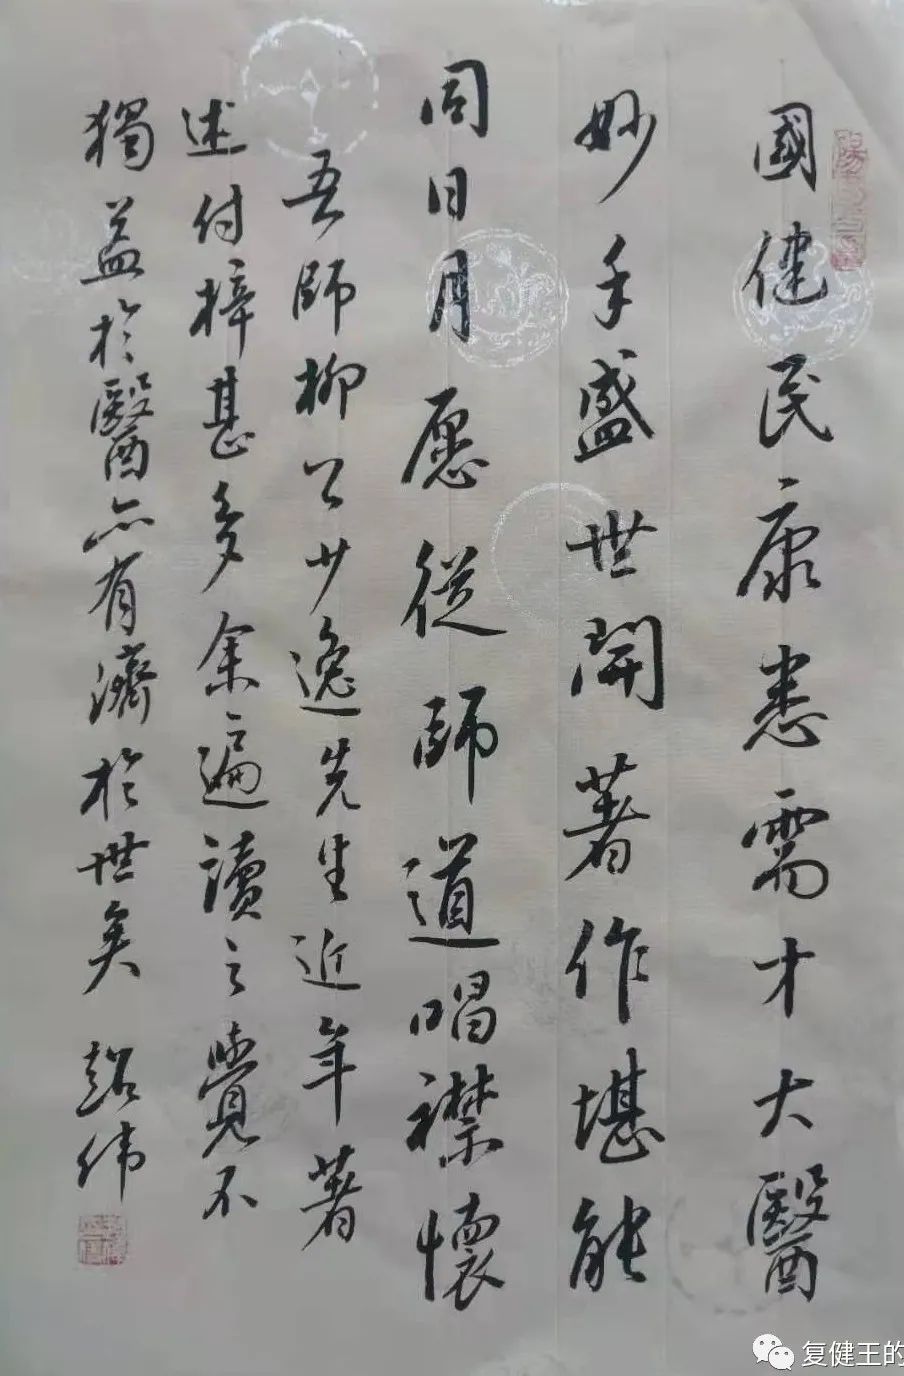 國健民康悉需才大醫
妙手盛世開著作堪能
同日月愿從師道唱襟懷
吾師柳公少逸先生近年著
述付梓甚多余遍讀之覺不
獨益於醫亦有濟於世矣 超伟
复健王的